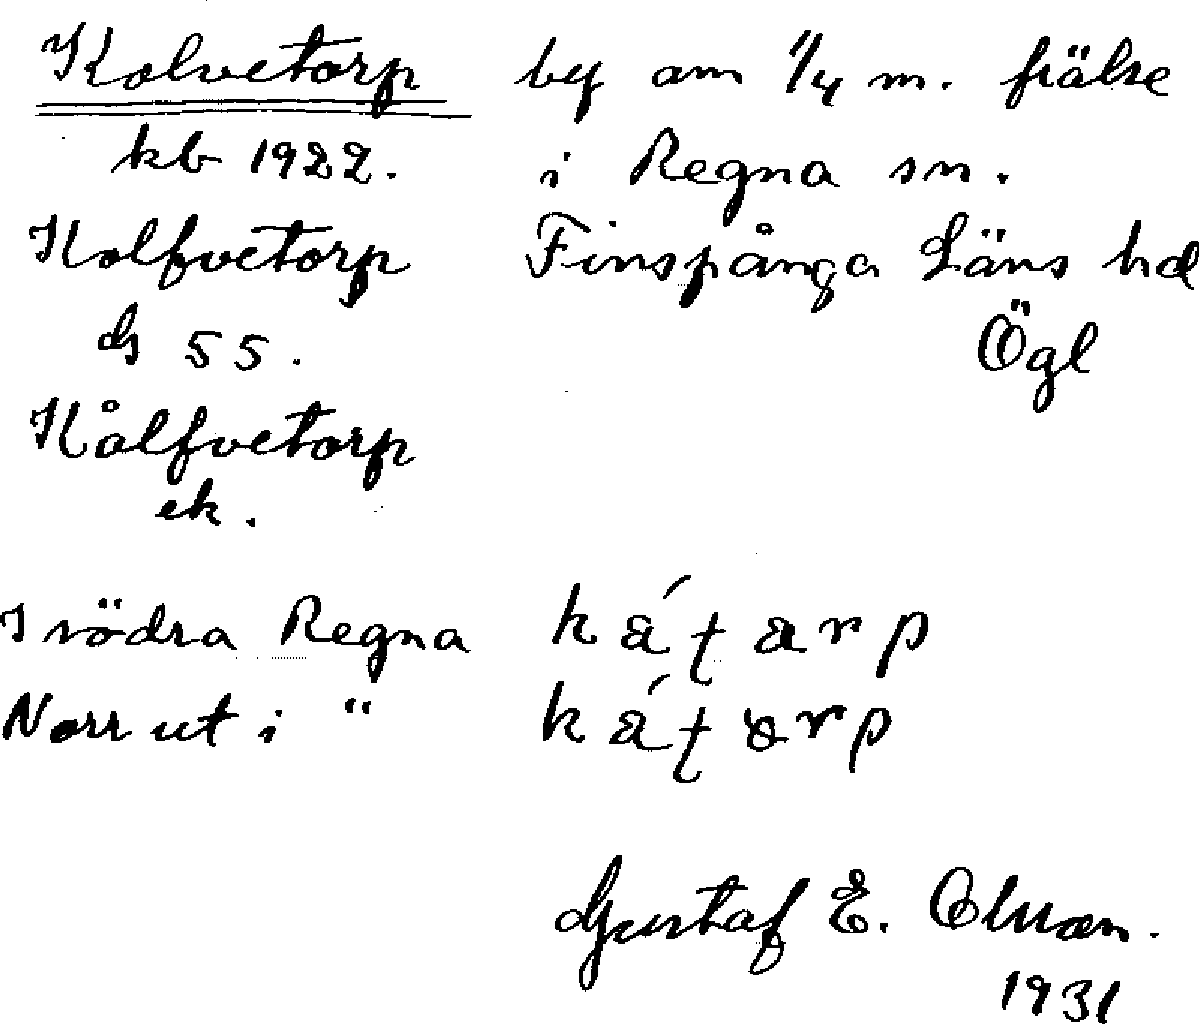 Kolvetorp by om 1/4 m. frälse
kb 1922. i Regna sn.
Kolfvetorp Finspånga Läns hd
ds 55. Ögl
Kålfvetorp
ek.
I södra Regna
Norr ut i "
Gustaf E. Olsson.
1931